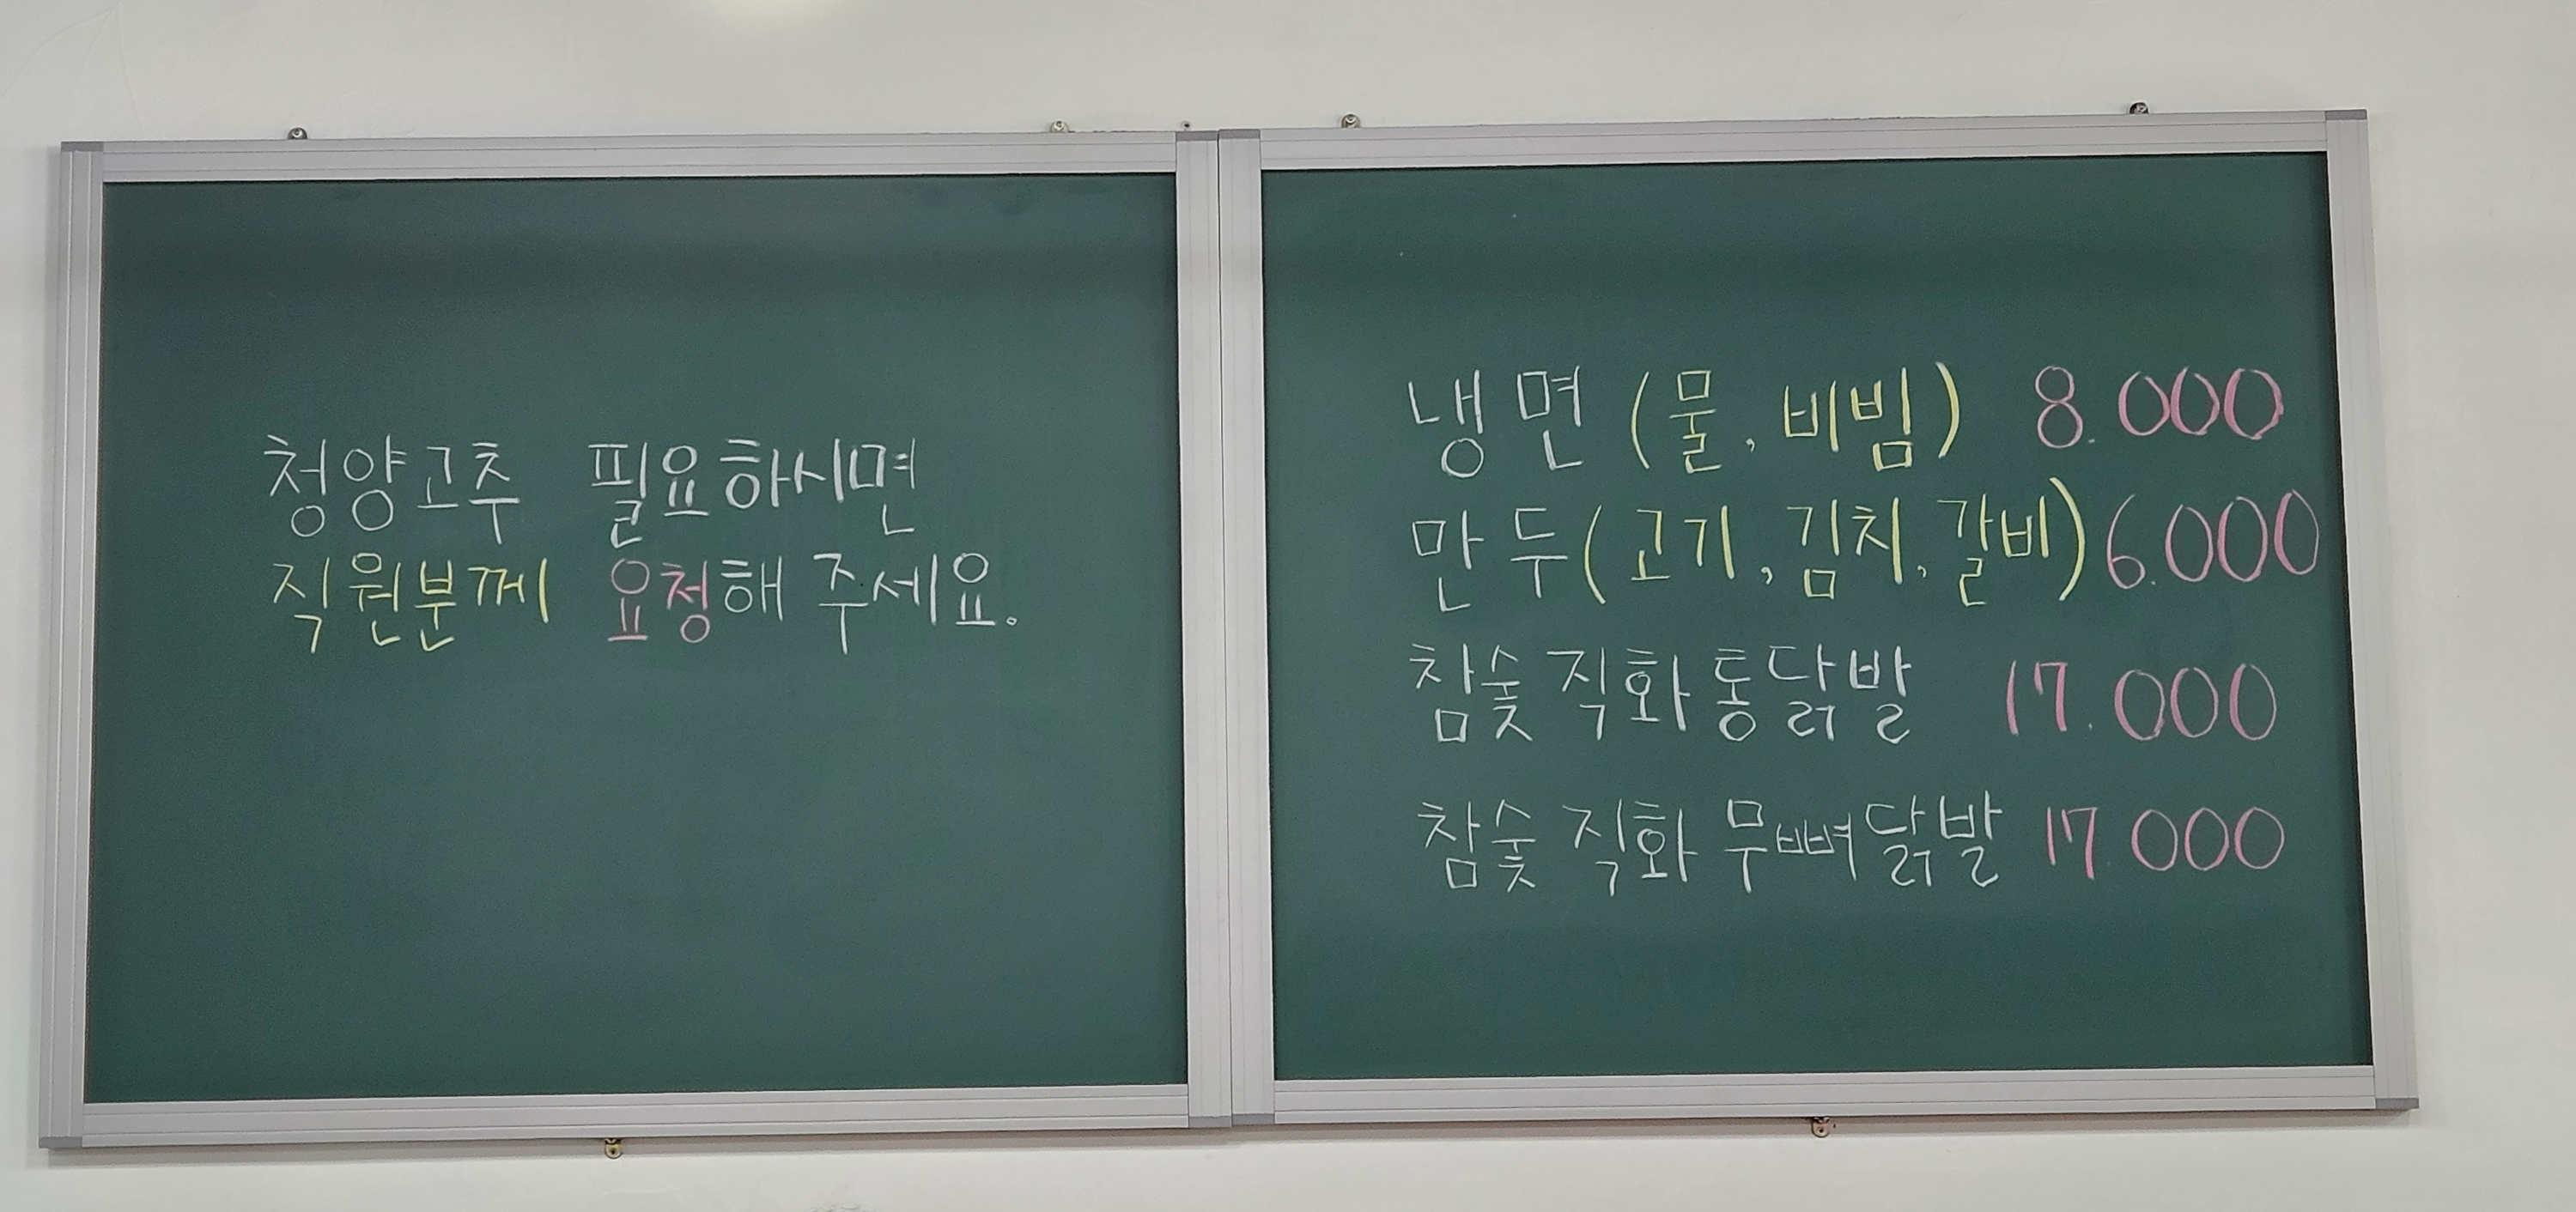 청양고추 필요하시면
직원분께 요청해 주세요.
냉면 (물, 비빔) 8.000
만두(고기, 김치, 갈비) 6.000
참숯 직화 통닭발 17.000
참숯 직화 무뼈닭발 17.000